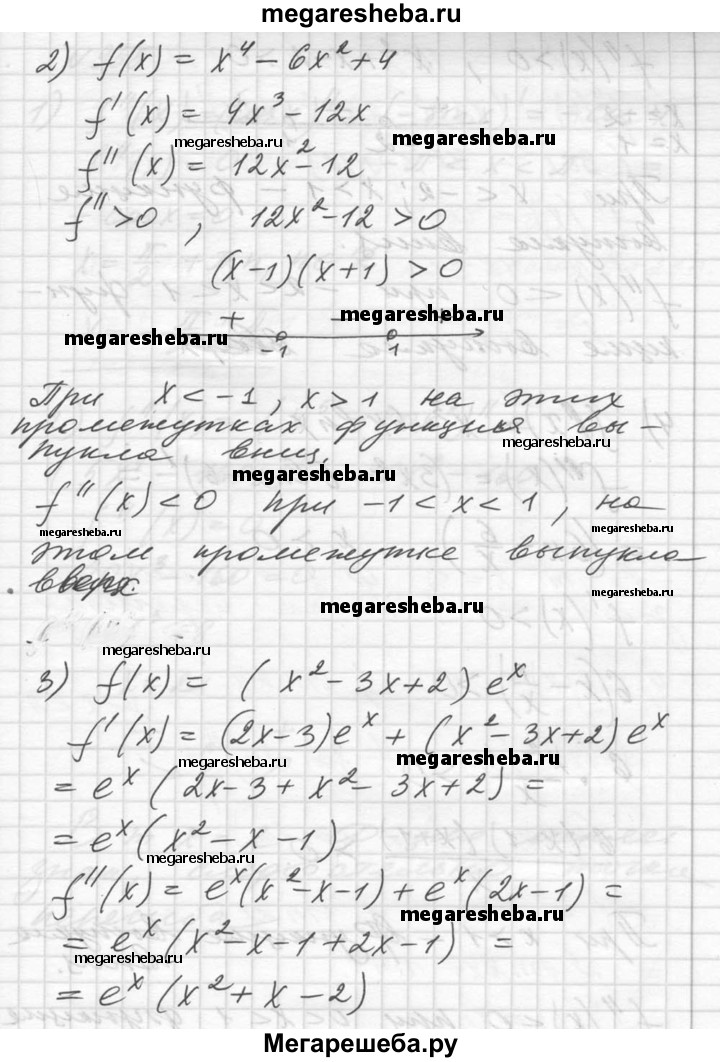 megaresheba.ru
2) f(x) = x⁴ - 6x² + 4
f'(x) = 4x³ - 12x
megaresheba.ru
megaresheba.ru
f''(x) = 12x² - 12
f'' > 0 , 12x² - 12 > 0
(x-1)(x+1) > 0
+ - +
megaresheba.ru
megaresheba.ru
-1 1
При x < -1, x > 1 на этих
промежутках функция вы-
megaresheba.ru
пукла вниз.
megaresheba.ru
f''(x) < 0 при -1 < x < 1, на
megaresheba.ru
megaresheba.ru
этом промежутке выпукла
вверх.
megaresheba.ru
megaresheba.ru
megaresheba.ru
3) f(x) = (x² - 3x + 2) eˣ
f'(x) = (2x-3)eˣ + (x² - 3x+2) eˣ
megaresheba.ru
megaresheba.ru
= eˣ (2x - 3 + x² - 3x + 2) =
= eˣ (x² - x - 1)
megaresheba.ru
f''(x) = eˣ(x² - x - 1) + eˣ(2x - 1) =
megaresheba.ru
= eˣ (x² - x - 1 + 2x - 1) =
megaresheba.ru
= eˣ (x² + x - 2)
megaresheba.ru
Мегарешеба.ру